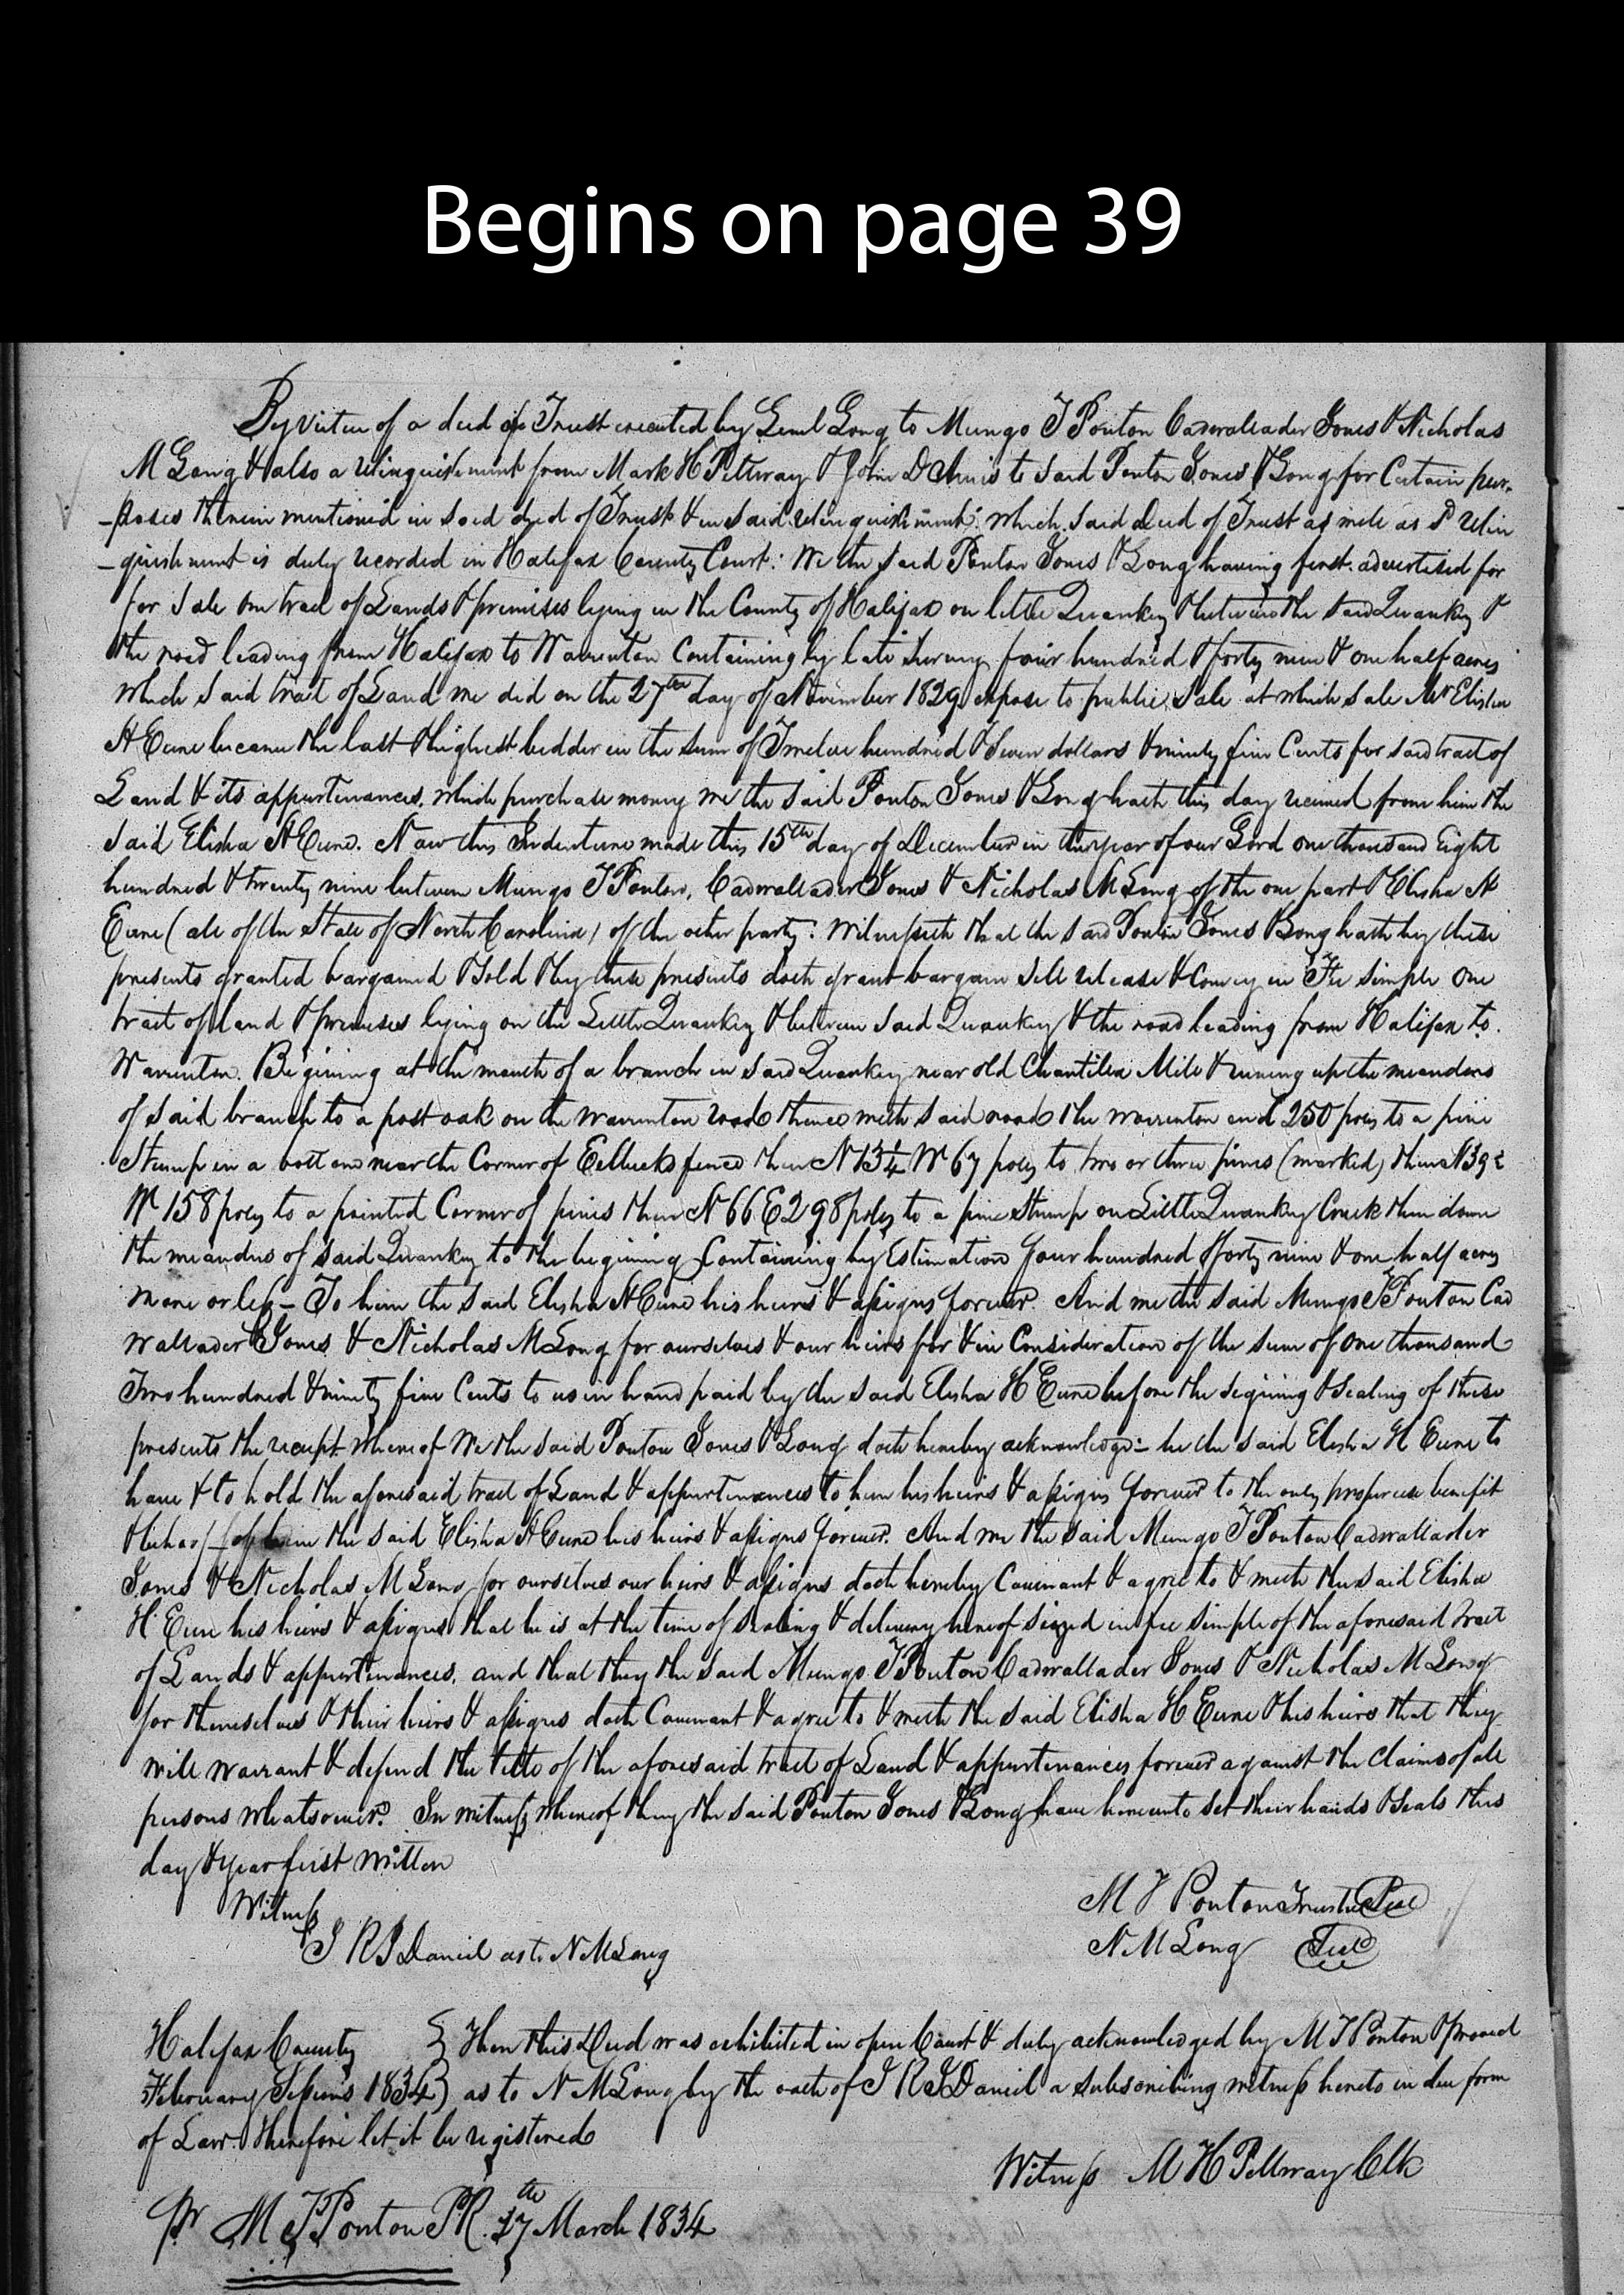 Begins on page 39
By virtue of a deed of Trust executed by Leml Long to Mungo T Ponton Cadwallader Jones & Nicholas
M Long & also a relinquishment from Mark H Pettway & John D Amis to said Ponton Jones & Long for Certain pur-
-poses therein mentioned in said deed of Trust & in said relinquishment: which said Deed of Trust as well as sd relin
-quishment is duly recorded in Halifax County Court: We the said Ponton Jones & Long having first advertised for
for Sale one tract of Lands & premises lying in the County of Halifax on little Quankey & between the said Quankey &
the road leading from Halifax to Warrenton Containing by late survey four hundred & forty nine & one half acres
which said tract of Land we did on the 27th day of November 1829 expose to public Sale at which sale Mr Elisha
H Eure became the last & highest bidder in the sum of Twelve hundred & Seven dollars & ninety five Cents for said tract of
Land & its appurtenances. which purchase money we the said Ponton Jones & Long hath this day received from him the
said Elisha H Eure. Now this Indenture made this 15th day of December in the year of our Lord one thousand Eight
hundred & twenty nine between Mungo T Ponton, Cadwallader Jones & Nicholas M Long of the one part & Elisha H
Eure (all of the State of North Carolina) of the other party: Witnesseth that the said Ponton Jones & Long hath by these
presents granted bargained & Sold & by these presents doth grant bargain sell release & Convey in Fee simple One
tract of land & premises lying on the Little Quankey & between said Quankey & the road leading from Halifax to
Warrenton. Begining at the mouth of a branch in said Quankey near old Chantilea Mill & runing up the meanders
of said branch to a post oak on the Warrenton road thence with said road the Warrenton end 250 poles to a pine
Stump in a bottom near the Corner of fence then N 13 1/4 W 67 poles to two or three pines (marked) then N 39
W 158 poles to a pointed Corner of pines then N 66 E 298 poles to a pine Stump on Little Quankey Creek then down
the meanders of said Quankey to the begining Containing by Estimation four hundred & forty nine & one half acres
more or less - To him the said Elisha H Eure his heirs & assigns forever. And we the said Mungo T Ponton Cad
wallader Jones, & Nicholas M Long for ourselves & our heirs for & in Consideration of the sum of one thousand
Two hundred & ninety five Cents to us in hand paid by the said Elisha H Eure before the signing & Sealing of these
presents the receipt whereof We the said Ponton Jones & Long doth hereby acknowledge:- he the said Elisha H Eure to
have & to hold the aforesaid tract of Land & appurtenances to him his heirs & assigns forever to the only proper use benefit
& behoof of him the said Elisha H Eure his heirs & assigns forever. And we the said Mungo T Ponton Cadwallader
Jones & Nicholas M Long for ourselves our heirs & assigns doth hereby Covenant & agree to & with the said Elisha
H Eure his heirs & assigns that he is at the time of sealing & delivery hereof siezed in fee simple of the aforesaid tract
of Lands & appurtenances. and that they the said Mungo T Ponton Cadwallader Jones & Nicholas M Long
for themselves & their heirs & assigns doth Covenant & agree to & with the said Elisha H Eure & his heirs that they
will warrant & defend the title of the aforesaid tract of Land & appurtenances forever against the Claims of all
persons whatsoever. In witness whereof they the said Ponton Jones & Long have hereunto set their hands & seals this
day & year first written
Witness
M T Ponton Trustee Seal
J R J Daniel as to N M Long
N M Long Seal
Halifax County } Then this Deed was exhibited in open Court & duly acknowledged by M T Ponton & proved
February Sessions 1834 } as to N M Long by the oath of J R J Daniel a subscribing witness hereto in due form
of Law. Therefore let it be registered
Witness M H Pettway Clk
Pr M T Ponton PR. 27th March 1834